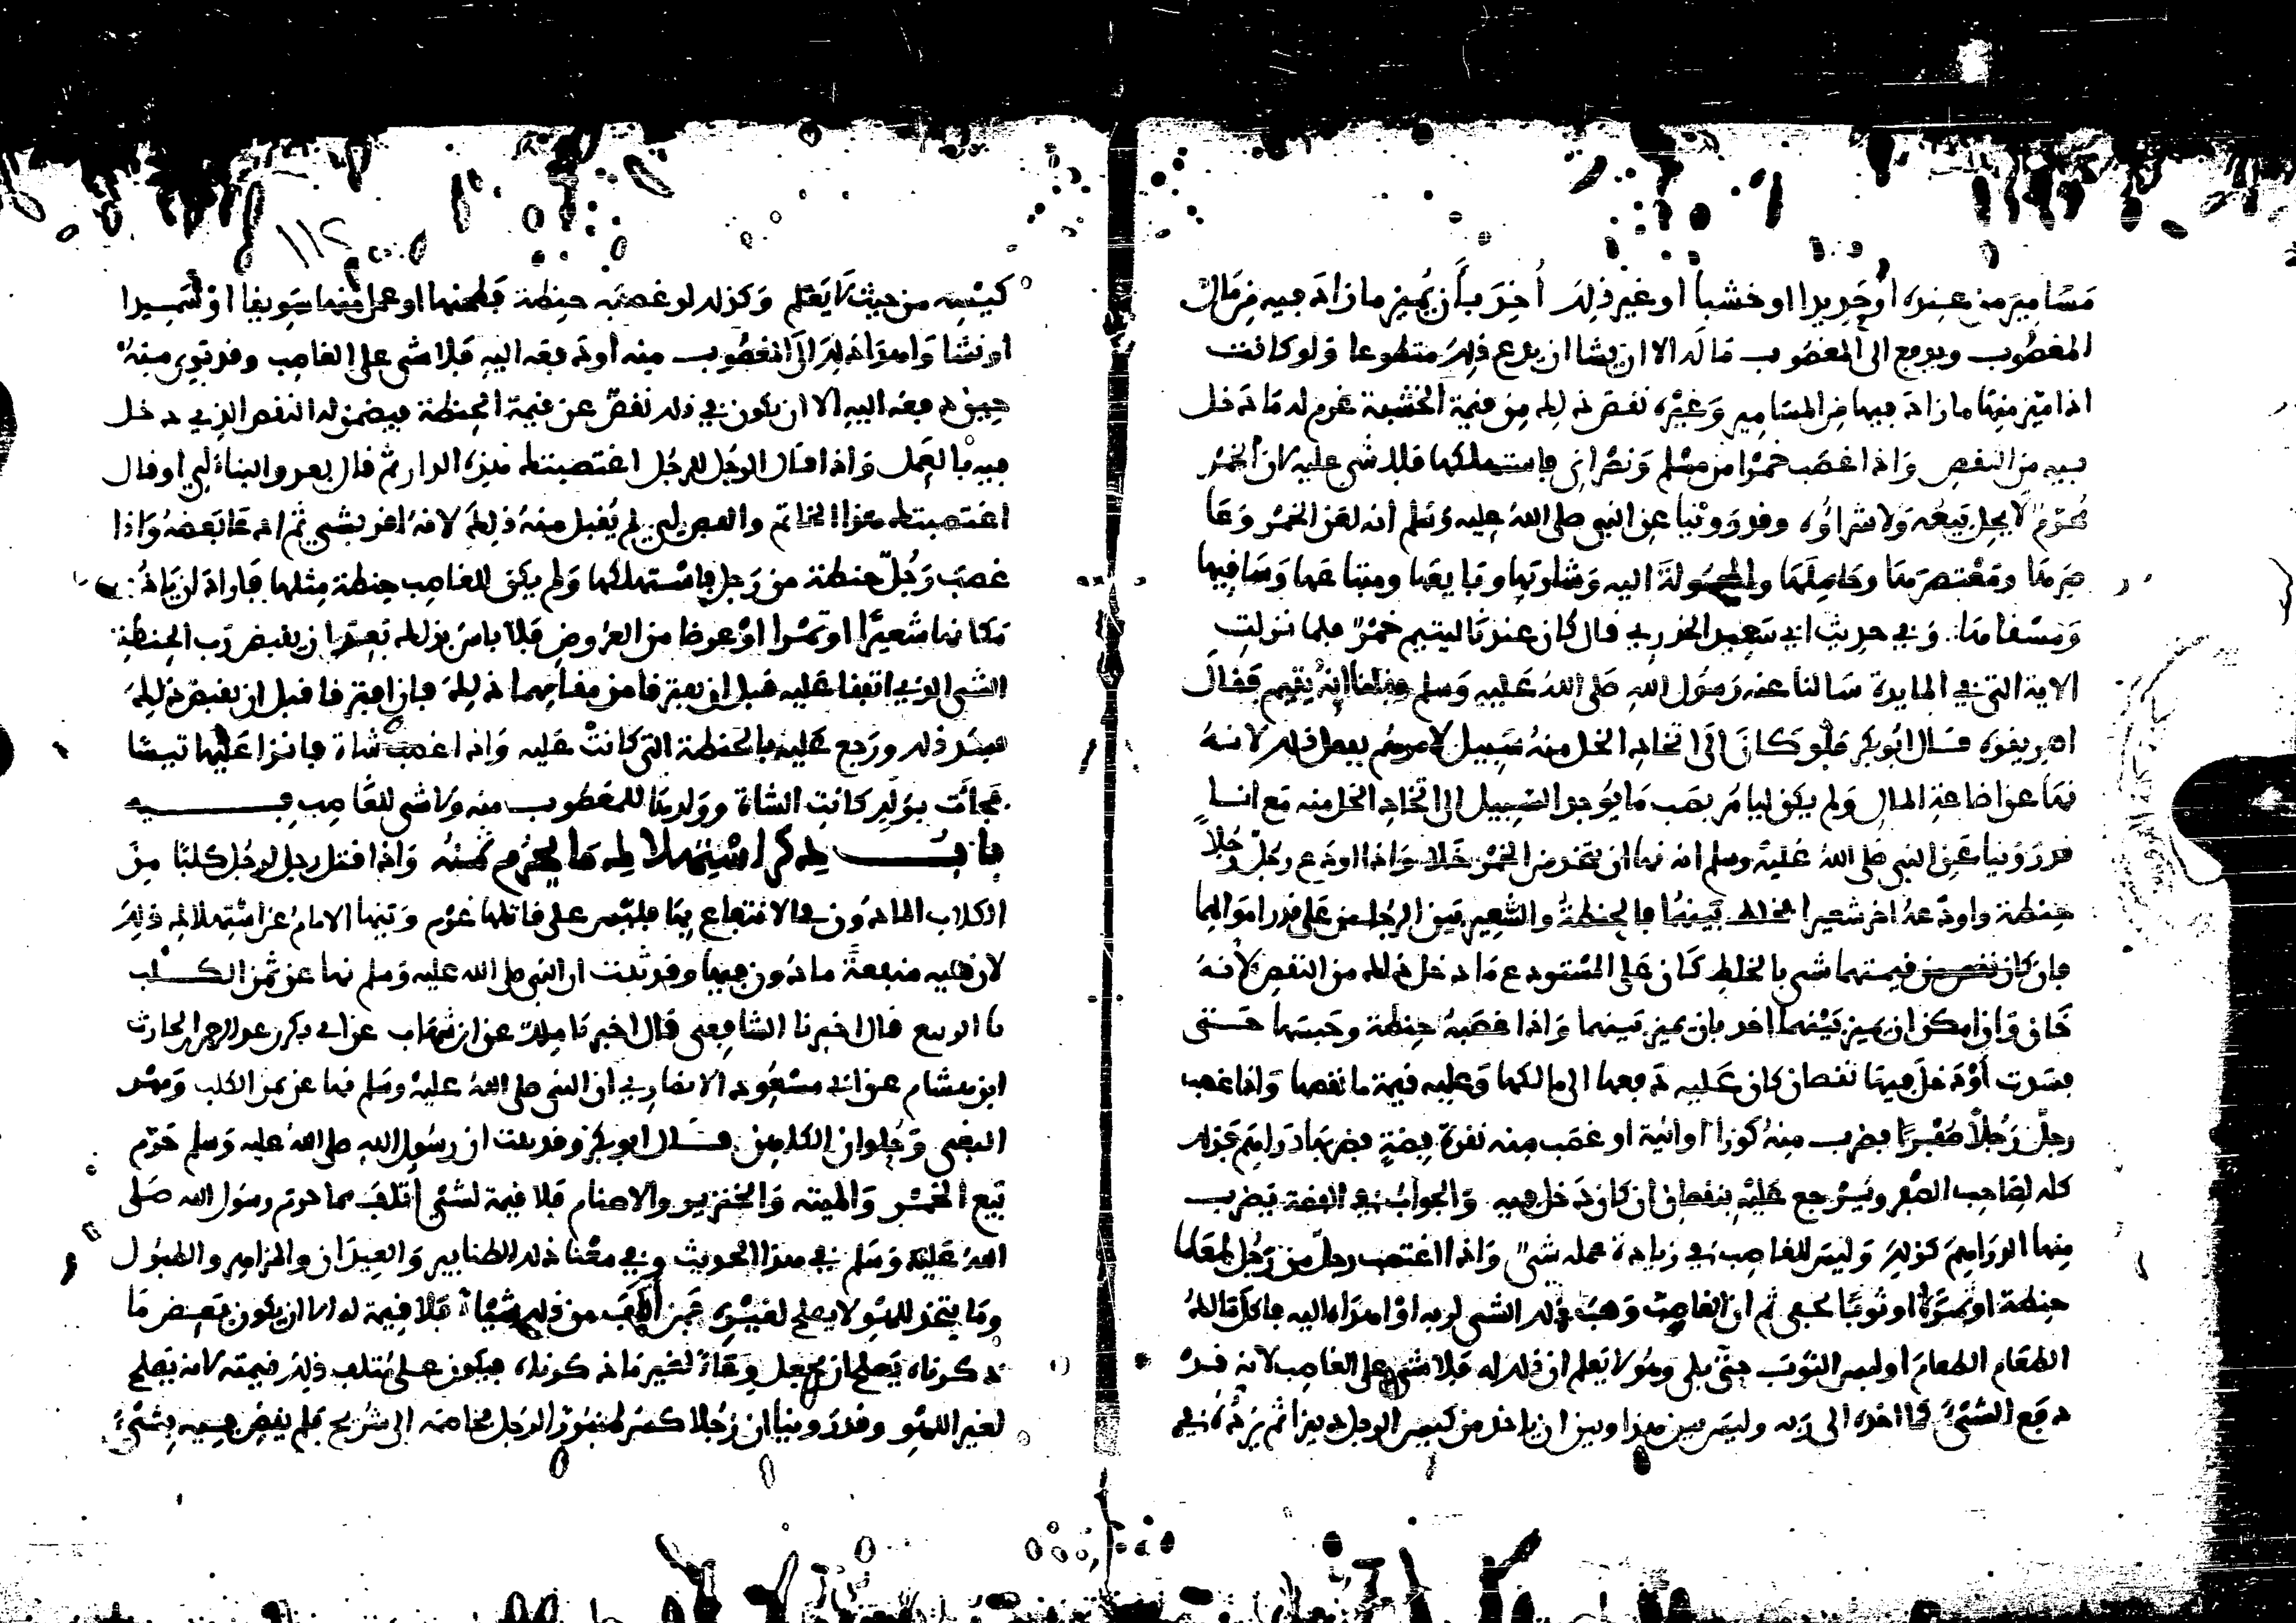 مسامير من عنده أو حديدا او خشبا أو غير ذلك أخذ بأن يميز ما زاد فيه من مال
المغصوب ويدفع الى المغصوب ماله الا ان يشا ان يدع ذلك متطوعا ولو كانت
اذا ميز منها ما زاد فيها من المسامير وغيره نقص ذلك من قيمة الخشبة غرم له ما دخل
فيه من النقص واذا غصب خمرا من مسلم ونصراني فاستهلكها فلا شي عليه لان الخمر
محرم لا يحل بيعه ولا شراؤه وقد روينا عن النبي صلى الله عليه وسلم أنه لعن الخمر وعا
صرها ومعتصرها وحاملها والمحمولة اليه وشاربها وبايعها ومبتاعها وساقيها
ومسقاها وفي حديث ابي سعيد الخدري قال كان عندنا ليتيم خمر فلما نزلت
الاية التي في المايدة سالنا عنه رسول الله صلى الله عليه وسلم وقلنا انه ليتيم فقال
اهريقوه قال ابو بكر فلو كان الى اتخاذ الخل منه سبيل لامرهم بفعل ذلك لانه
نها عن اضاعة المال ولم يكن ليامر بصب ما يوجد السبيل الى اتخاذ الخل منه مع انا
قد روينا عن النبي صلى الله عليه وسلم انه نها ان يتخذ من الخمر خلا واذا اودع رجل رجلا
حنطة واودعه اخر شعيرا فخلط بينهما فالحنطة والشعير بين الرجلين على قدر اموالهما
فان كان نقص من قيمتهما شي بالخلط كان على المستودع ما دخل ذلك من النقص لانه
خان وان امكن ان يميز بينهما اخذ بان يميز بينهما واذا غصبه حنطة وحبسها حتى
فسدت أو دخل فيها نقصان كان عليه دفعها الى مالكها وعليه قيمة ما نقصها واذا غصب
رجل رجلا صفرا فضرب منه كوزا او انية او غصب منه نقرة فضة فضربها دراهم فذلك
كله لصاحب الصفر ويسترجع عليه بنقصان ان كان دخل فيه والجواب في الفضة يضرب
منها الدراهم كذلك وليس للغاصب في زيادة عمله شي واذا اغتصب رجل من رجل طعاما
حنطة او تمرة او ثوبا ثم ان الغاصب وهب ذلك الشي لربه أو اهداه اليه فاكل مالك
الطعام الطعام او لبس الثوب حتى بلي وهو لا يعلم ان ذلك له فلا شي على الغاصب لانه قد
دفع الشئ كما اخذه الى ربه وليس بين هذا وبين ان ياخذ من كيس الرجل دينرا ثم يرده في
١١٢
كيسه من حيث لا يعلم وكذلك لو غصبه حنطة فطحنها او عمل منها سويقا او
او نشا واهدا ذلك الى المغصوب منه أو دفعه اليه فلا شي على الغاصب وقد بري منه
حين دفعه اليه الا ان يكون في ذلك نقص عن قيمة الحنطة فيضمن له النقص الذي دخل
فيه بالعمل واذا قال الرجل للرجل اغتصبتك هذه الدار ثم قال بعد والبناء لي او قال
اغتصبتك هذا الخاتم والفص لي لم يقبل منه ذلك لانه اقر بشي ثم ادعا بعضه واذا
غصب رجل حنطة من رجل فاستهلكها ولم يكن للغاصب حنطة مثلها فاراد ان ياخذ
مكانها شعيرا او تمرا او عرضا من العروض فلا باس بذلك بعد ان يقبض رب الحنطة
الشي الذي اتفقا عليه قبل ان يفترقا من مقامهما ذلك فان افترقا قبل ان يقبض ذلك
فسد ذلك ورجع عليه بالحنطة التي كانت عليه واذا اغصب شاة فانزا عليها تيسا
فجاءت بولد كانت الشاة وولدها للمغصوب منه ولا شي للغاصب فيه
باب ذكر استهلاك ما يحرم ثمنه واذا قتل رجل لرجل كلبا من
الكلاب الماذون في الانتفاع بها فليس على قاتلها غرم وينها الامام عن استهلاك ذلك
لان فيه منفعة ماذون فيها وقد ثبت ان النبي صلى الله عليه وسلم نها عن ثمن الكلب
نا الربيع قال اخبرنا الشافعي قال اخبرنا ملك عن ابن شهاب عن ابي بكر بن عبد الرحمن بن الحارث
ابن هشام عن ابي مسعود الانصاري ان النبي صلى الله عليه وسلم نها عن ثمن الكلب ومهر
البغي وحلوان الكاهن قال ابو بكر وقد ثبت ان رسول الله صلى الله عليه وسلم حرم
بيع الخمر والميتة والخنزير والاصنام فلا قيمة لشئ أتلف مما حرم رسول الله صلى
الله عليه وسلم في هذا الحديث وفي معنا ذلك الطنابير والعيدان والمزامير والطبول
وما يتخذ للهو لا يصلح لغيره فمن اتلف من ذلك شيا فلا قيمة له الا ان يكون بعض ما
ذكرناه يصلح ان يجعل وعاء لغير ما ذكرناه فيكون على متلف ذلك قيمته لانه يصلح
لغير اللهو وقد روينا ان رجلا كسر طنبور الرجل فخاصمه الى شريح فلم يقض فيه بشئ